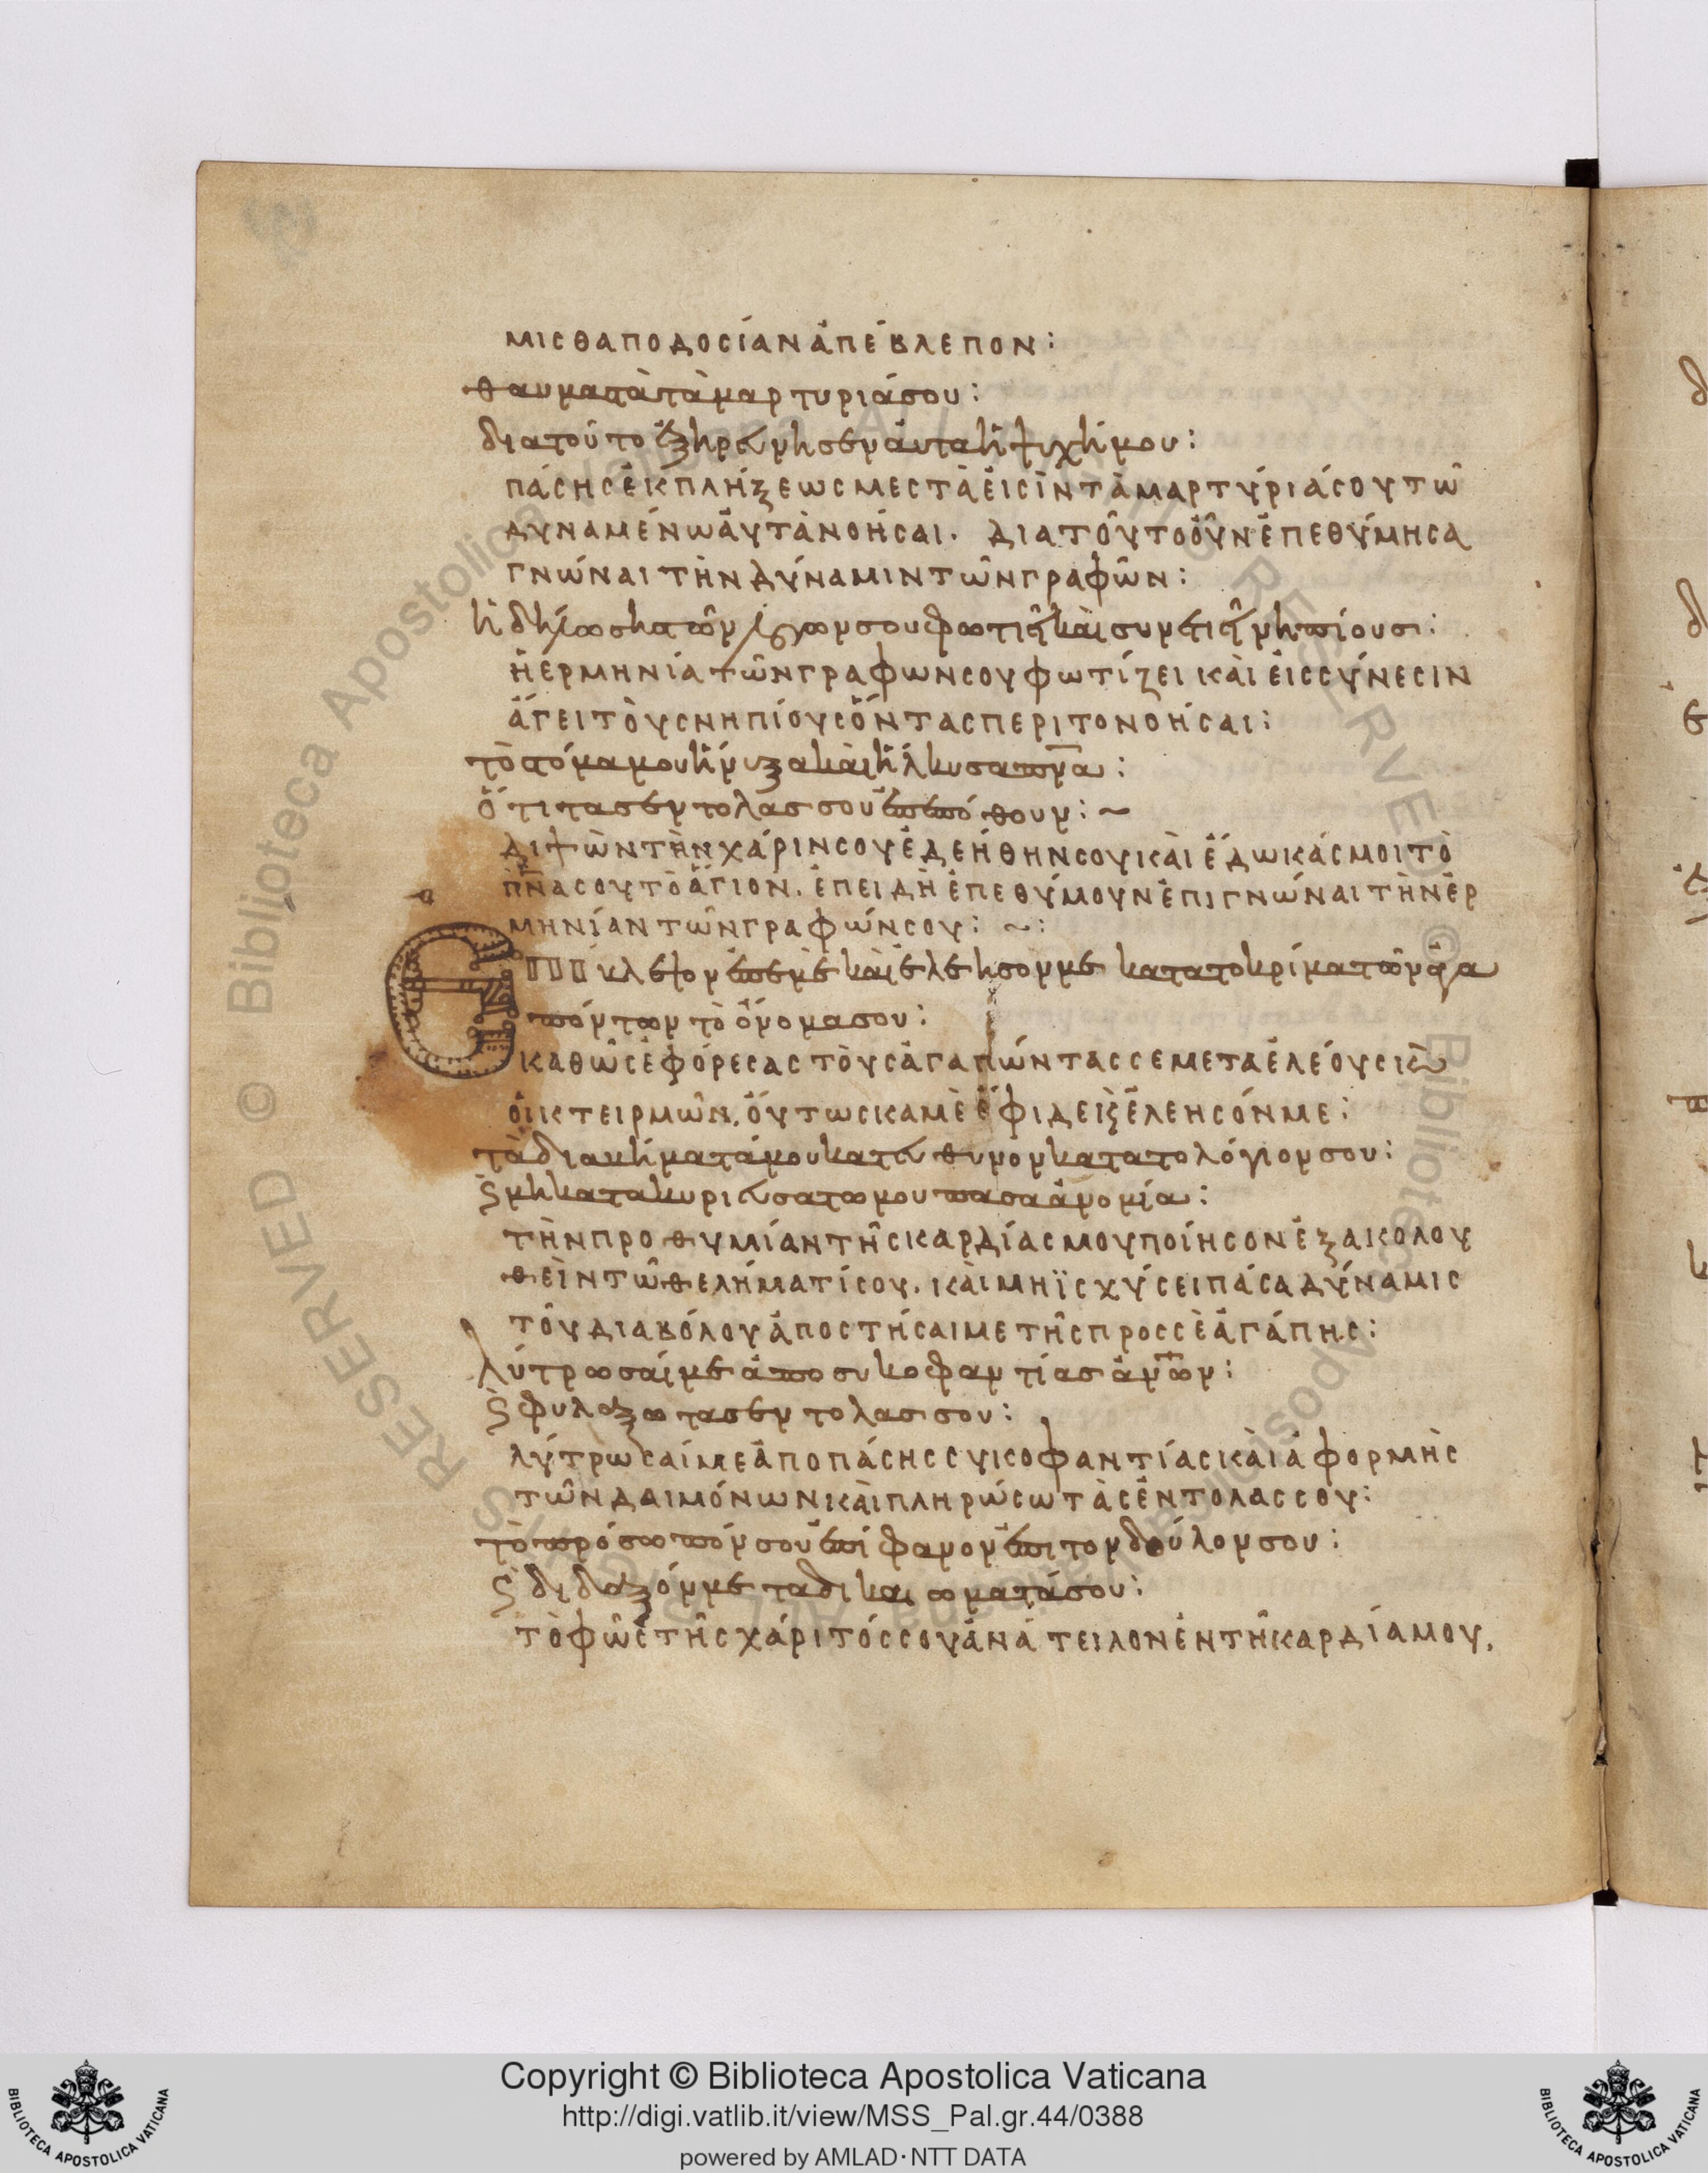 μισθαποδοσίαν ἀπέβλεπον:
θαυμαστὰ τὰ μαρτυριάσου:
διατοῦτο ἐξηρεύνησεν ἀυτα ἡ ψυχήμου:
πάσησ ἐκπλήξεωσ μεστὰ ἐισὶν τὰ μαρτύριάσου τῶ
δυναμένω ἀυτὰ νοῆσαι. διατοῦτο οὖν ἐπεθύμησα
γνώναι τὴν δύναμιν τῶν γραφῶν:
ἡ δήλωσισ τῶν λόγωνσου φωτιεῖ καὶ συνετιεῖ νηπίουσ:
ἡ ερμηνία τῶν γραφωνσου φωτίζει καὶ ἐισ σύνεσιν
ἄγει τὸυσ νηπίουσ ὄντασ περιτονοῆσαι:
τὸ στόμαμου ἤνυξα καὶ ἥλκυσα πνα:
ὅτι τασ εντολάσ σου ἐπεπόθουν: ~
διψὼν τὴν χάρινσου ἐδεήθηνσου καὶ ἔδωκάσμοι τὸ
πνασου τὸ ἅγιον. ἐπειδὴ ἐπεθύμουν ἐπιγνώναι τὴν ἑρ
μηνίαν τῶν γραφώνσου: ~:
Επιβλεψον ἐπεμὲ καὶ ελεησονμε κατατοκρίμα τῶν ἀγα
πόντων τὸ ὄνομασου:
καθῶσ ἐφόρεσασ τὸυσ ἀγαπώντασ σε μετα ἐλέουσ κὲ
ὀικτειρμῶν, ὅυτωσ καμὲ ἔφιδε κ ἐλεησόνμε:
τὰ διαβήματάμου κατεύθυνον κατατολόγιονσου:
κ μη κατακυριευσατωμου πασα ἀνομία:
τὴν προθυμίαν τῆσ καρδίασμου ποίησον ἐξακολου
θεὶν τῶ θελήματίσου. καὶ μηϊσχύσει πάσα δύναμισ
τοῦ διαβόλου ἀποστήσαιμε τῆσ προσσὲ ἀγάπησ:
λύτρωσαίμε ἀπο συκοφαντίασ ἀνων:
κ φυλαξω τασ εντολασ σου:
λύτρωσαίμε ἀποπάσησ συκοφαντίασ καὶ ἀφορμὴσ
τῶν δαιμόνων καὶ πληρώσω τὰσ ἐντολασ σου:
τὸ πρόσωπόνσου ἐπίφανον ἐπι τον δούλονσου:
κ διδαξόνμε τα δικαιωματάσου:
τὸ φῶσ τῆσ χάριτόσσου ἀνάτειλον ἐν τῆ καρδίαμου,
Copyright © Biblioteca Apostolica Vaticana
http://digi.vatlib.it/view/MSS_Pal.gr.44/0388
powered by AMLAD·NTT DATA